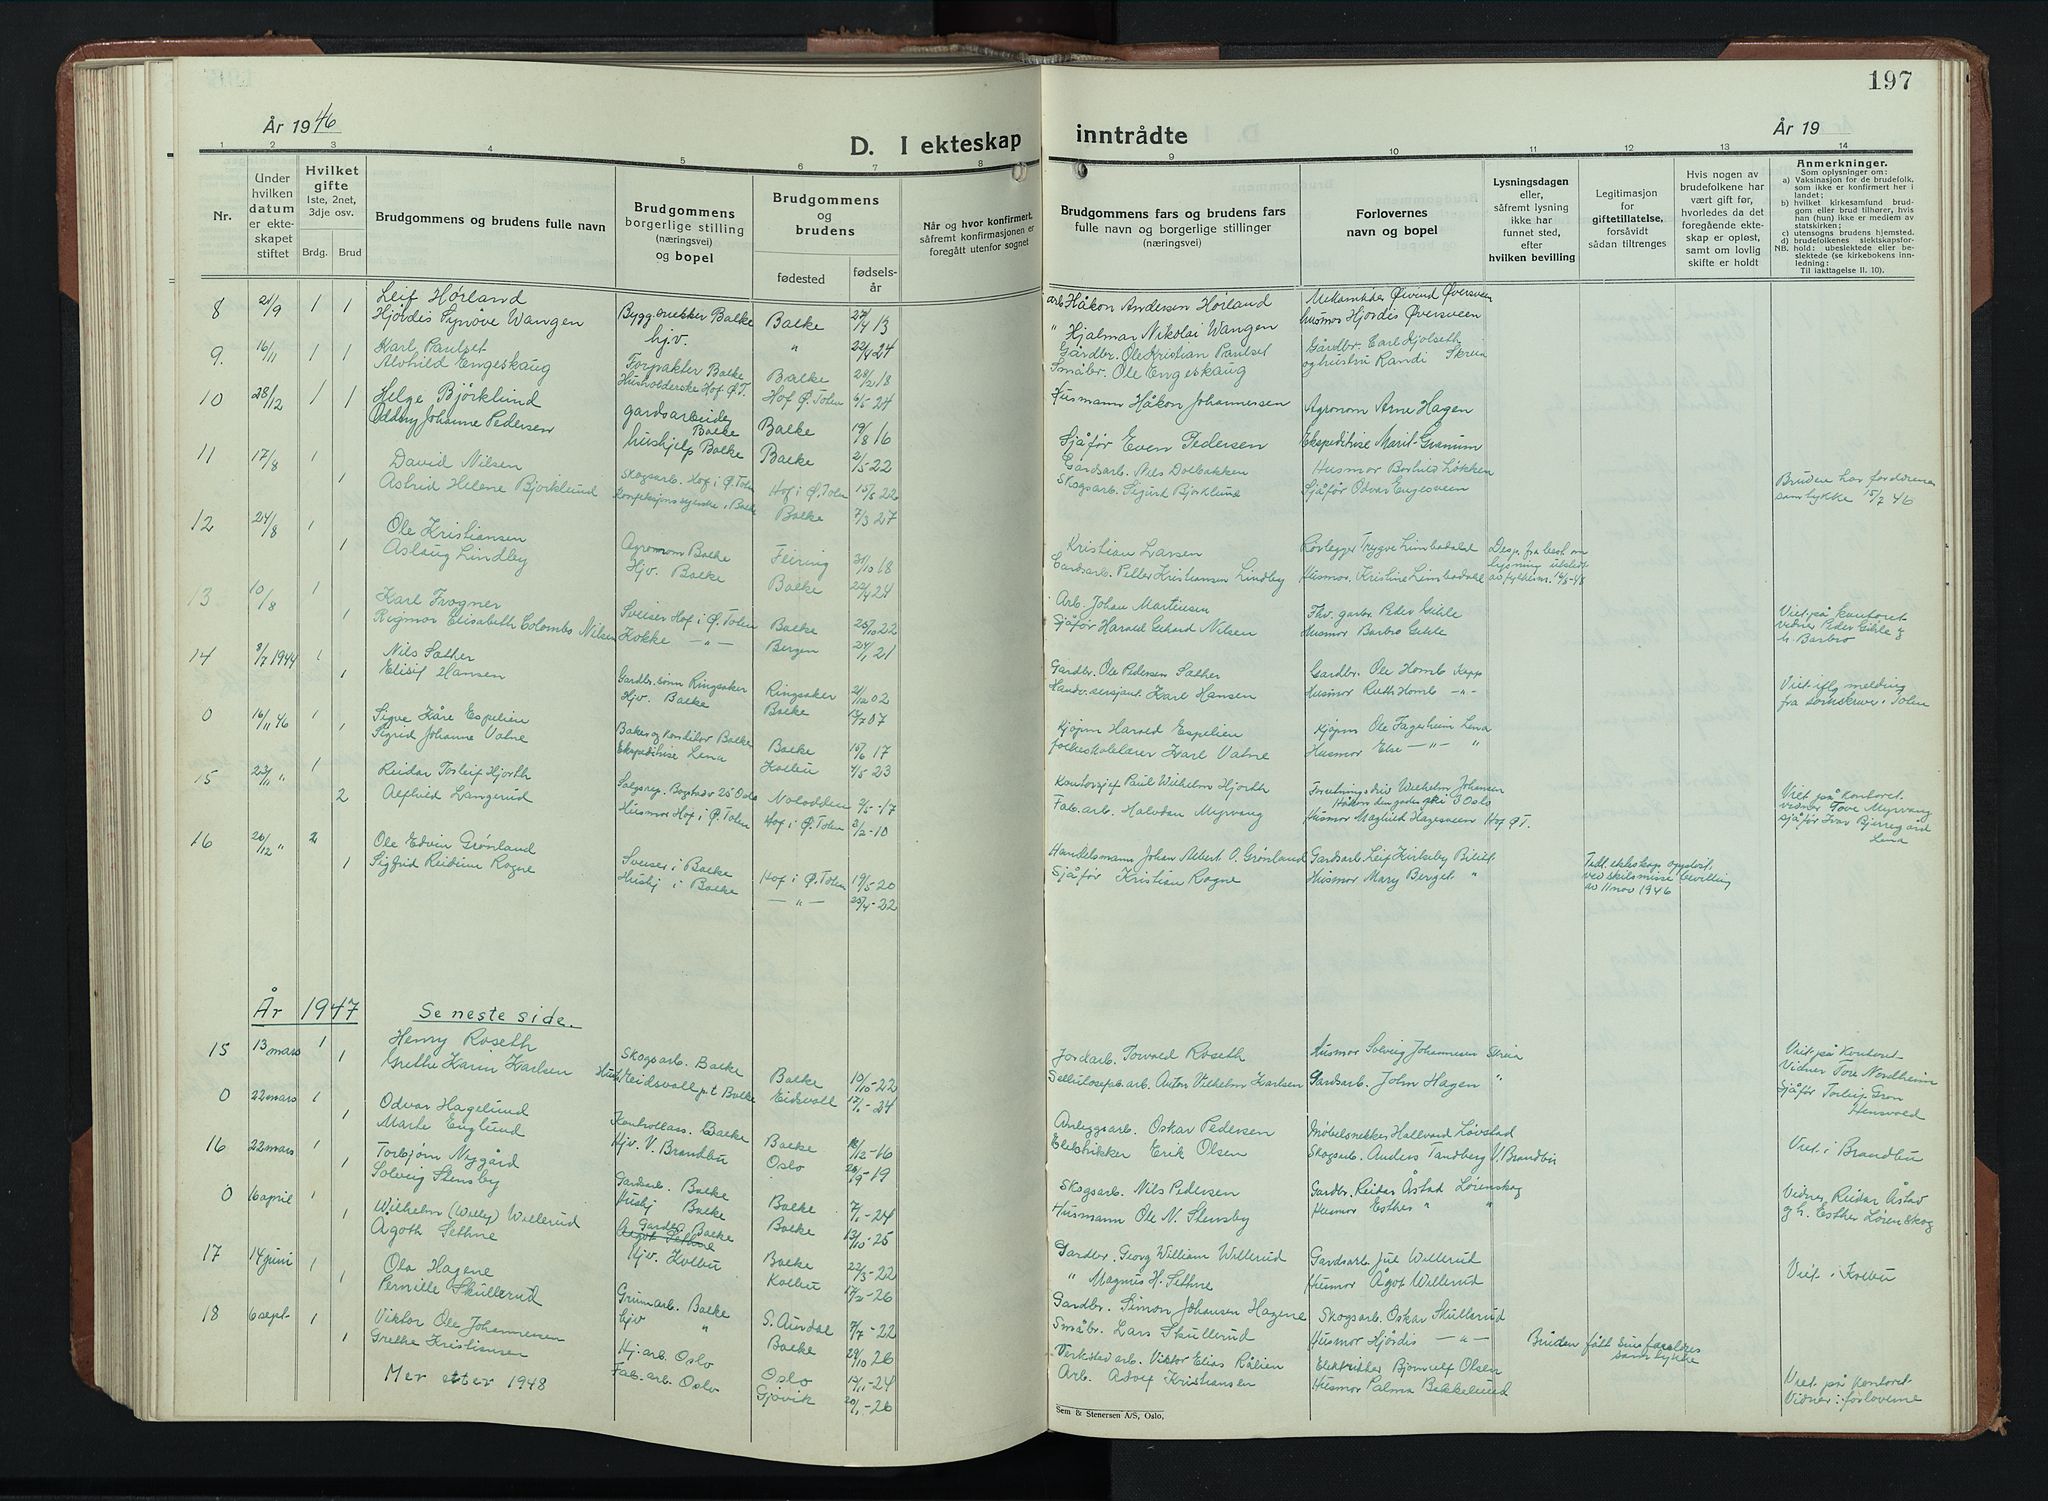 197
År 1946
D. I ekteskap inntrådte
År 19
1 2 3 4 5 6 7 8 9 10 11 12 13 14
Nr.
Under hvilken datum er ekteskapet stiftet
Hvilket gifte 1ste, 2net, 3dje osv.
Brdg. Brud
Brudgommens og brudens fulle navn
Brudgommens borgerlige stilling (næringsvei) og bopel
Brudgommens og brudens
fødested
fødselsår
Når og hvor konfirmert, såfremt konfirmasjonen er foregått utenfor sognet
Brudgommens fars og brudens fars fulle navn og borgerlige stillinger (næringsvei)
Forlovernes navn og bopel
Lysningsdagen eller, såfremt lysning ikke har funnet sted, efter hvilken bevilling
Legitimasjon for giftetillatelse, forsåvidt sådan tiltrenges
Hvis nogen av brudefolkene har vært gift før, hvorledes da det foregående ekteskap er opløst, samt om lovlig skifte er holdt
Anmerkninger.
Som oplysning om:
a) Vaksinasjon for de brudefolk, som ikke er konfirmert her i landet;
b) hvilket kirkesamfund brudgom eller brud tilhører, hvis han (hun) ikke er medlem av statskirken;
c) utensogns brudens hjemsted.
d) brudefolkenes slektskapsforhold: ubeslektede eller beslektede (se kirkebokens innledning:
NB. Til iakttagelse II. 10).
8 21/9 1 1 Leif Hörland Bygg.snekker Balke Balke 27/4 13 arb Håkon Andersen Hörland Øivind Øversveen
Hjördis Synöve Wangen hjv. " 22/4 24 " Hjalmar Nikolai Wangen husmor Hjördis Øversveen
9. 16/11 1 1 Karl Paulset Forpakter Balke Balke 28/2 18 Gårdbr. Ole Kristian Paulset Gårdbr. Carl Kjölseth
Alvhild Engeskaug Husholderske Hof Ø.T. Hof Ø. Toten 6/5 24 Småbr. Ole Engeskaug og hustru Randi Skreia
10 28/12 1 1 Helge Björklund gardsarbeider Balke Balke 19/8 16 Husmann Håkon Johannessen Agronom Arne Hagen
Oddny Johanne Pedersen hushjelp Balke Balke 2/5-22 Sjåför Even Pedersen Ekspeditrise Marit Granum
11 17/8 1 David Nilsen Skogsarb. Hof i Ø. Toten Hof i Ø. Toten 15/5 22 Gardsarb. Nils Dolbakken Husmor Borhild Løkken
1 Astrid Helene Bjorklund Konfeksjonssyerske i Balke Balke 7/3 27 Skogsarb. Sigurd Bjorklund Sjåfør Odvar Engesveen Bruden har foreldrenes
samtykke 15/7 46
12 24/8 1 Ole Kristiansen Agronom Balke Feiring 31/10 18 Kristian Larsen Rørlegger Trygve Limbodalal Desp. fra best. om
1 Aslaug Lindby Hjv. Balke Balke 22/4 24 Gardsarb. Petter Kristiansen Lindby Husmor. Kristine Limbodalal lysning utstedt
av fylkesm.
13 10/8 1 Karl Frogner Sveiser Hof i Ø. Toten Balke 25/10 22 Arb. Johan Martinsen Fhv. garbr. Peder Gihle Viet på kontoret
1 Rigmor Elisabeth Colombo Nilsen Kokke -"- Bergen 24/1 21 Sjåfør Harald Gerhard Nilsen Husmor Barbro Gihle vidner Peder Gihle og
h. Barbro
14 8/7 1944 1 Nils Sæther Gardbr.sønn Ringsaker Ringsaker 21/12 02 Gardbr. Ole Pedersen Sæther Gardbr. Ole Homb Kapp Viet iflg. melding
1 Elisif Hansen Hjv. Balke Balke 13/7 07 Handv.sersjant Karl Hansen Husmor Ruth Homb -"- fra sorenskriver i Toten
0 16/11 46 1 Sigve Kåre Espelien Baker og Konditor Balke Balke 15/6 17 Kjøpm Harald Espelien Kjøpm Ole Fagerheim Lena
1 Sigrid Johanne Valne Ekspeditrise Lena Kolbu 4/5 23 folkeskolelærer Karl Valne Husmor Else -"- "
15 23/11 " 1 Reidar Torleif Hjorth Salgsrep. Bogstadv 25 Oslo Notodden 9/5-17 Kontorsjef Paul Wilhelm Hjorth Forretningsdriv Wilhelm Johansen Viet på kontoret
Håkon den godes gt 3 Oslo vidner Tove Myrvang
2 Alfhild Langerud Husmor Hof i Ø. Toten Hof i Ø. Toten 3/2-10 Fab.arb. Halvdan Myrvang Husmor Maghild Hagesveen Hof Ø T. sjåfør Ivar Bjerregård
Lena
16 26/12 " 2 Ole Edvin Grønland Sveiser i Balke Hof i Ø. Toten 19/5 20 Handelsmann Johan Albert O. Grønland Gardsarb. Leif Kirkeby Bilitt Tidl. ekteskap oppløst
1 Sigfrid Reidun Rogne Hushj i Balke -"- 25/4-22 Sjåfør Kristian Rogne Husmor Mary Berget " ved skilsmisse bevilling
av 11 nov 1946
År 1947 Se neste side.
15 13 mars 1 Henry Roseth Skogsarb. Balke Balke 10/10-22 Jordarb. Torvald Roseth Husmor Solveig Johannesen Skreia Viet på kontoret
1 Grethe Karin Karlsen Hush. Eidsvoll p.t Balke Eidsvoll 17/1-24 Sellulosefab.arb. Anton Vilhelm Karlsen Gardsarb. John Hagen " Vidner Tore Nordheim
Sjåfør Torleif Gron
Hensvold
0 22 mars 1 Odvar Hagelund Kontrollass. Balke Balke 18/12-16 Anleggsarb. Oskar Pedersen Møbelsnekker Hallvard Løvstad Viet i Brandbu
1 Marte Englund Hjv. V. Brandbu Oslo 26/9-19 Elektrikker Erik Olsen Skogsarb. Anders Tandberg V. Brandbu
16 22 mars 1 Torbjørn Nygård Gardsarb. Balke Balke 7/1-24 Skogsarb. Nils Pedersen Gardbr. Reidar Åstad Lørenskog Vidner Reidar Åstad
1 Solveig Stensby Hushj Balke Balke 13/10-25 Husmann Ole N. Stensby Husmor Esther " " og h. Esther Lørenskog
0 16 april 1 Wilhelm (Willy) Willerud Gardbr Balke Balke 22/3-22 Gardbr. Georg William Willerud Gardsarb. Jul Willerud Viet i Kolbu
1 Ågoth Sethne Hjv. Kolbu Kolbu 17/2-26 " Magnus H. Sethne Husmor Ågot Willerud
17 14 juni 1 Ola Hagene Gruvarb. Balke S. Aurdal 7/7-22 Gardbr. Simon Johansen Hagene Skogsarb. Oskar Skullerud
1 Pernille Skullerud hjv " Balke 29/10 26 Småbr. Lars Skullerud Husmor Hjørdis -"- Bruden fått sine foreldres
samtykke
18 6 sept. 1 Viktor Ole Johannessen Hj.arb. Oslo Oslo 17/11-24 Verkstad arb. Viktor Elias Rålien Elektrikker Bjornulf Olsen Viet på kontoret
1 Grethe Kristiansen Fab.arb. Oslo Gjøvik 20/1-26 Arb. Adolf Kristiansen Husmor Palma Bekkelund Vidner: forloverne
Mer etter 1948
Sem & Stenersen A/S, Oslo.